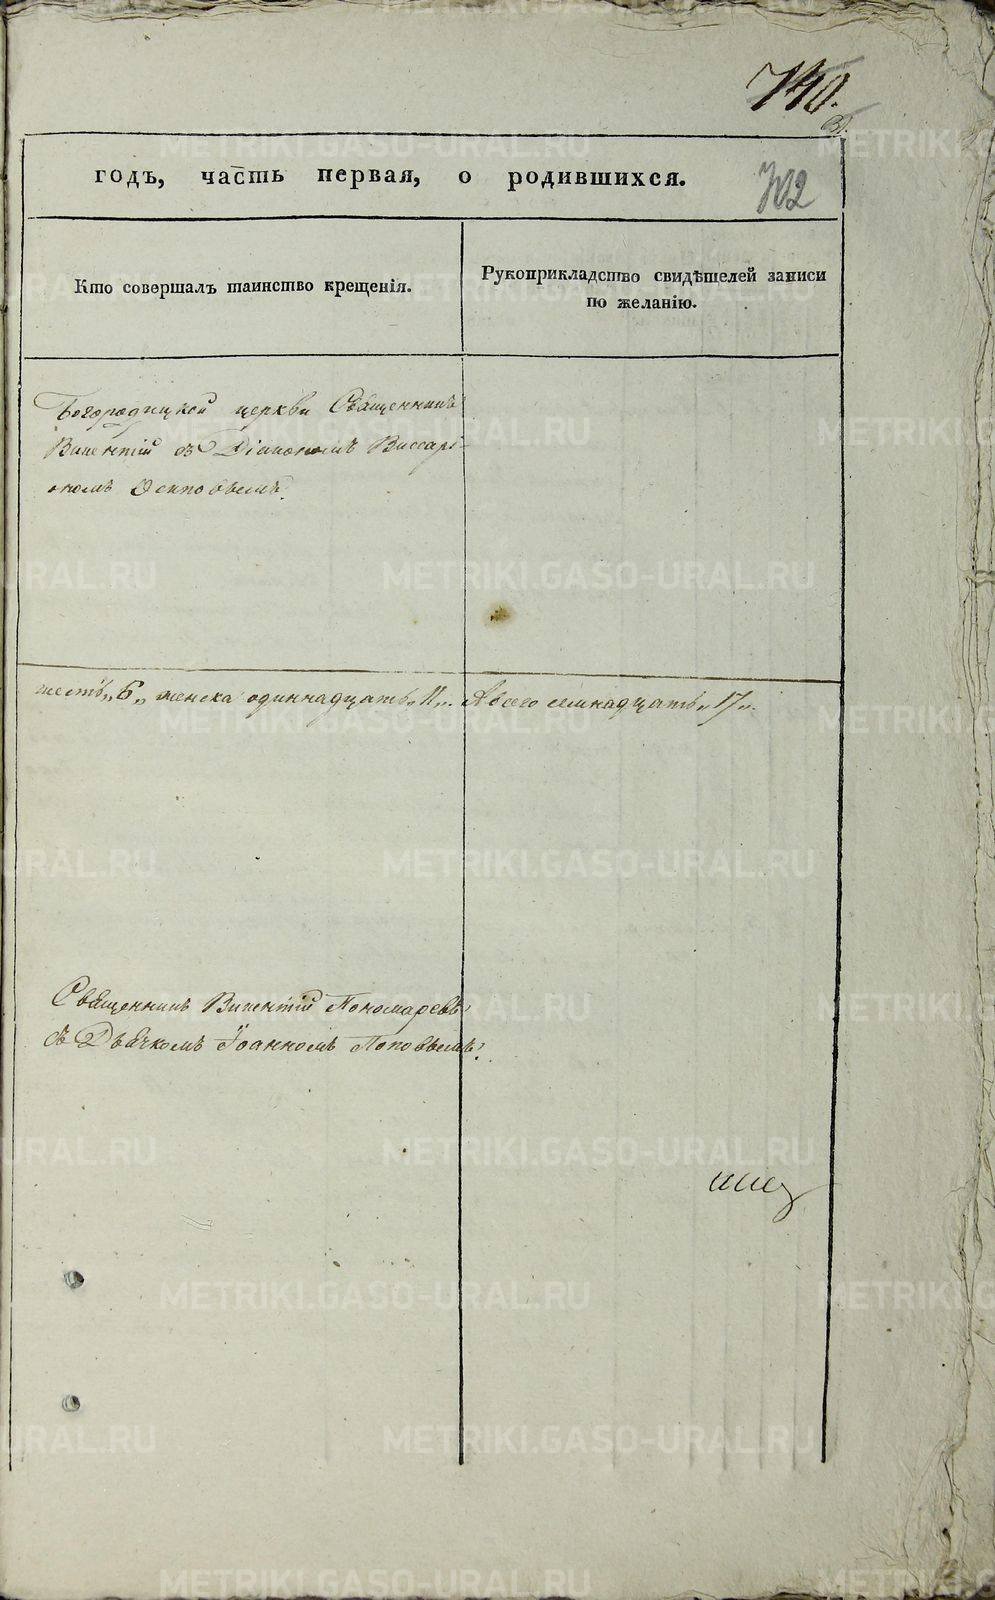 740.
годъ, часть первая, о родившихся.
702
Кто совершалъ таинство крещенія.
Рукоприкладство свидѣтелей записи
по желанію.
Богородицкой церкви Священникъ
Викентій съ Діакономъ Виссарі-
ономъ Осиповымъ.
шесть „6„ женска одиннадцать „11„. А всего семнадцать „17„.
Священникъ Викентій Пономаревъ
съ Дьячкомъ Іоанномъ Поповымъ.
METRIKI.GASO-URAL.RU